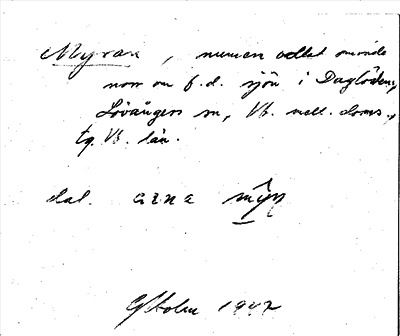 Myran, numera odlat område
norr om f.d. sjön i Daglösten,
Lövångers sn, Vb. mell. doms.,
tg. Vb. län.
dat. arna mŷn
G Holm 1947